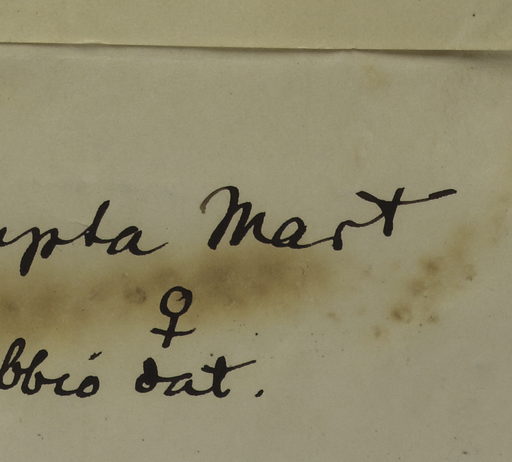 upta Mart
♀
bbio dat.